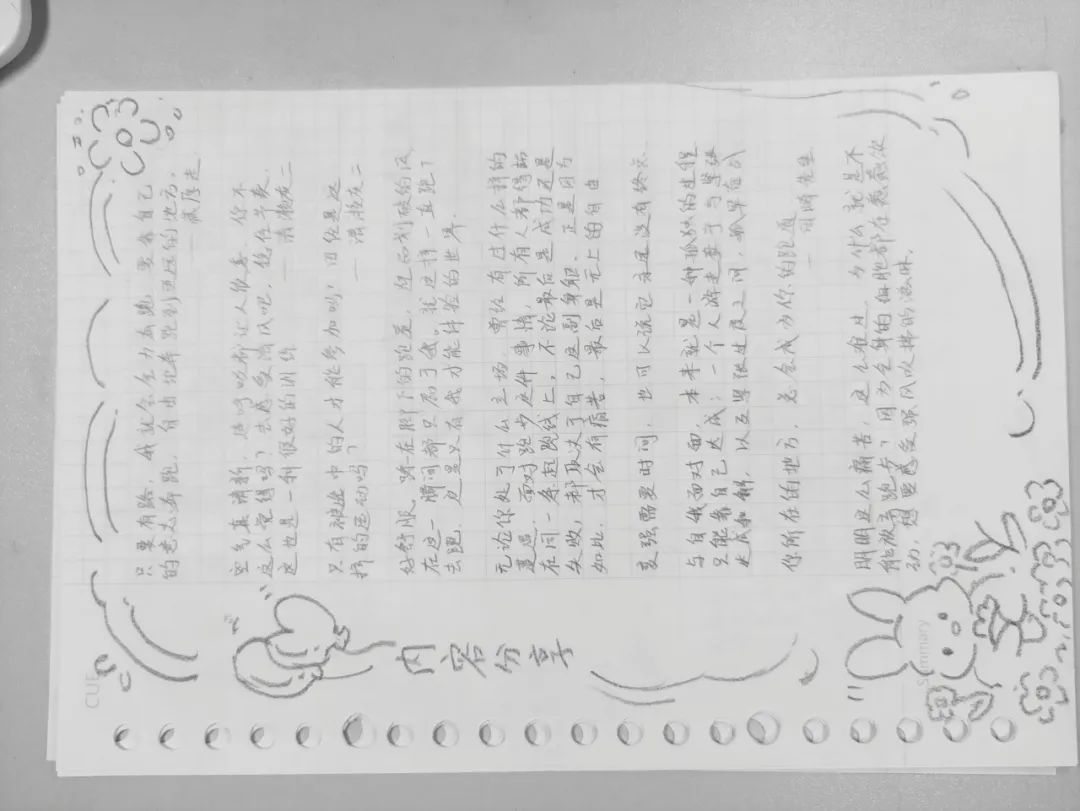 CUE
内容分享
只要有路，我就会全力去跑，要靠自己
的意志奔跑，自由地奔跑到遥远的地方。
——藏原走
空气真清新，连呼吸都让人惬意，你不
这么觉得吗？去感受清风吧，
这也是一种很好的训练 ——清濑灰二
只有被选中的人才能参加吗？田径是这
样的运动吗？ ——清濑灰二
好舒服，踏在脚下的跑道，划破的风，
在这一瞬间都只属于我。就这样一直跑下
去吧，这是只有我才能体验的世界。
无论你处于什么立场，曾经有过什么样的
遭遇，面对跑步这件事情，所有人都得站
在同一条起跑线上，不论最后是成功还是
失败，都取决于自己这副身躯。正是因为
如此，才会有痛苦，最后是无上的自由
变强需要时间，也可以说它永远没有终点
与自我面对面，本来就是一种孤独的过程
只能靠自己达成；一个人游走于与紧张
达成和解，以及紧张过度之间，孤军奋战
你所在的地方，总会成为你的跑道
明明这么痛苦，这么难过，为什么就是不
能放弃跑步？因为全身的细胞都在蠢蠢欲
动，想要感受强风吹拂的滋味。
Summary